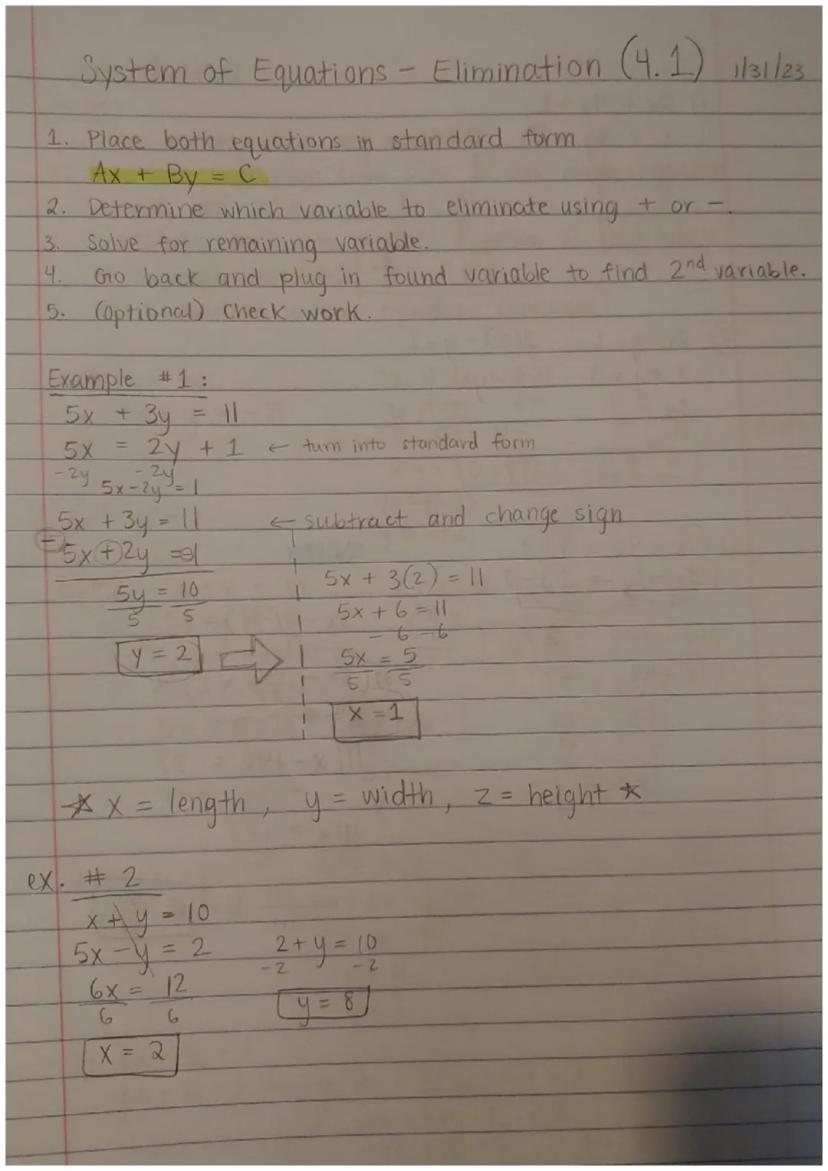 System of Equations - Elimination (4.1) 1/31/23
1. Place both equations in standard form
Ax + By = C
2. Determine which variable to eliminate using + or -.
3. Solve for remaining variable.
4. Go back and plug in found variable to find 2nd variable.
5. (optional) check work.
Example #1:
5x + 3y = 11
5x = 2y + 1 ← turn into standard form
-2y -2y
5x-2y = 1
5x + 3y = 11 ← subtract and change sign
- 5x + 2y = -1
5y = 10
5 5
y = 2
5x + 3(2) = 11
5x + 6 = 11
- 6 -6
5x = 5
5 5
x = 1
* x = length, y = width, z = height *
ex. # 2
x + y = 10
5x - y = 2
6x = 12
6 6
x = 2
2 + y = 10
-2 -2
y = 8